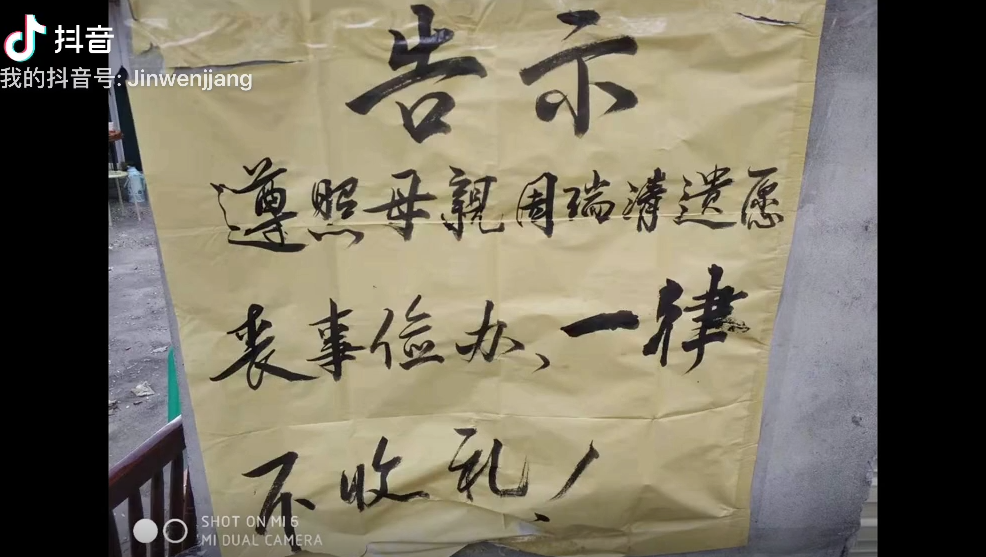 抖音
我的抖音号: Jinwenjjang
告示
遵照母亲周瑞清遗愿
丧事俭办、一律
不收礼!
SHOT ON MI 6
MI DUAL CAMERA